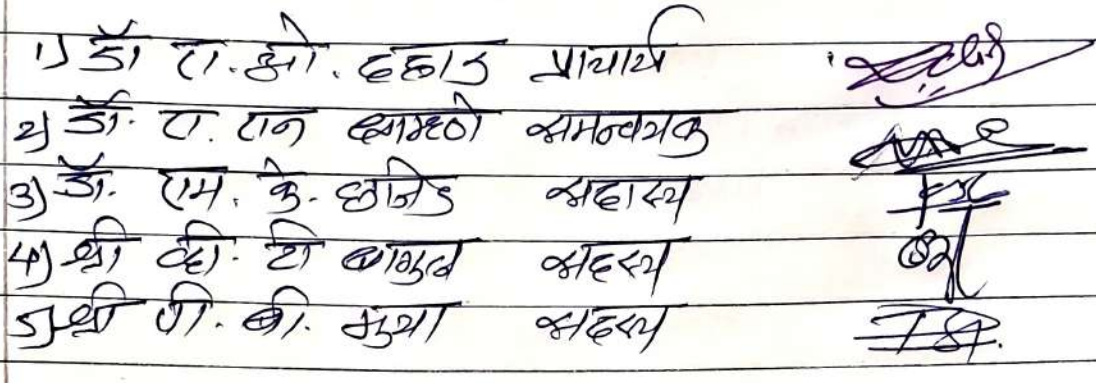 1) डॉ ए. ओ. दहाड प्राचार्य
2) डॉ. ए. एन समन्वयक
3) डॉ. एम. के. सदास्य
4) श्री व्ही. टी बागुल सदस्य
5) श्री पी. बी. मुथा सदस्य